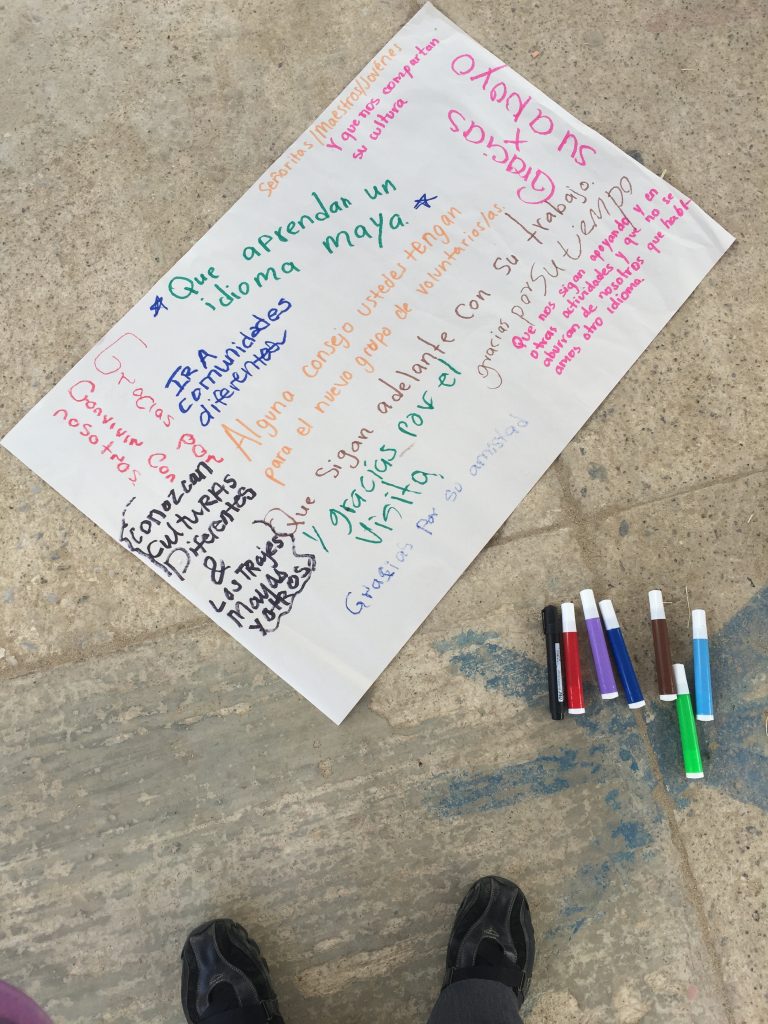 Señoritas/Maestros/Jovénes
Y que nos compartan
su cultura
Gracias
x
su apoyo
Que aprendan un
idioma maya.
IR A
comunidades
diferentes
Alguna consejo ustedes tengan
para el nuevo grupo de voluntarias/as.
Gracias por
Convivir con
nosotros
Conozcan
culturas
Diferentes
&
Los Trajes
Mayas
y otros.
Que sigan adelante con su trabajo.
y gracias por el
visita
gracias por su tiempo
Que nos sigan apoyando y en
otras actividades y que no se
aburran de nosotros que habl-
amos otro idioma.
Gracias por su amistad